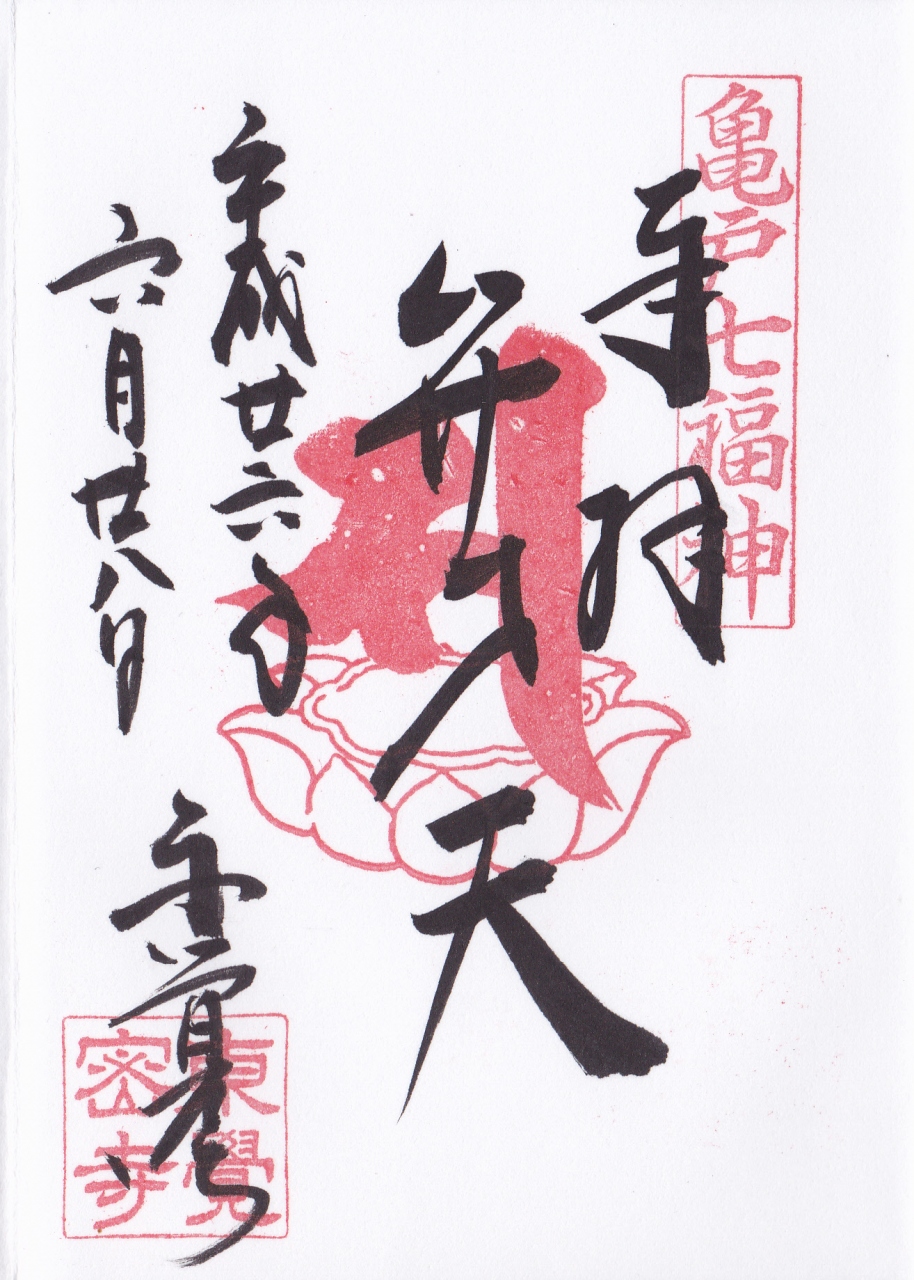 亀戸七福神
奉拝
弁才天
平成廿六年
六月廿八日
東覚寺
東覺
密寺